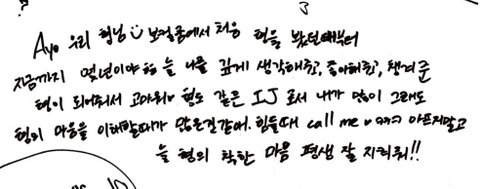 Ayo 우리 형님 보컬룸에서 처음 형을 봤던때부터
지금까지 몇년이야 늘 나를 깊게 생각해주고, 좋아해주고, 챙겨준
형이 되어줘서 고마워 형도 같은 IJ 로서 내가 많이 그래도
형의 마음을 이해할때가 많은것같아. 힘들때 call me ㅋㅋㅋ 아프지말고
늘 형의 착한 마음 평생 잘 지켜줘!!